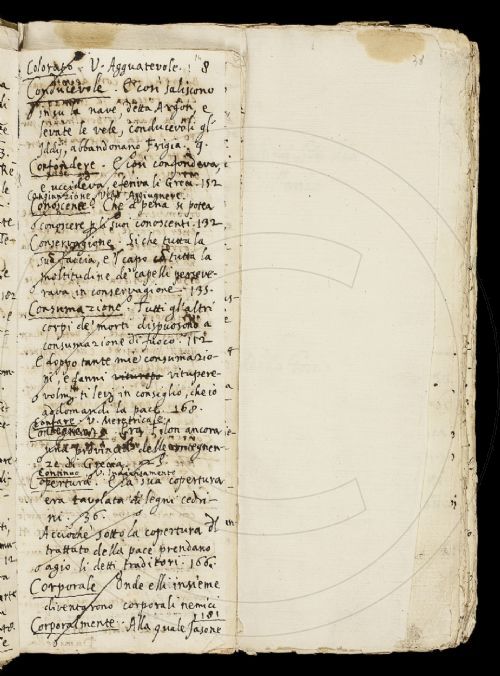 38
Colorato. V. Agguatevole. 8
Conducevole. E così saliscono
in su la nave, detta Argon, e
levate le vele, conducevoli gl'
Iddij, abbandonano Frigia. 9.
Confondere. E così confondeva,
e uccideva, e feriva li Greci. 152
Congiunzione. Ved. Aggiugnere.
Conoscente. Che a pena si potea
conoscere da suoi conoscenti. 132
Conservagione. Sì che tutta la
sua faccia, e 'l capo con tutta la
moltitudine de' capelli perseve-
rava in conservagione. 135.
Consumazione. Tutti gl'altri
corpi de' morti dispuosono a
consumazione di fuoco. 112
e doppo tante mie consumazio-
ni, e danni vitupere-
volm. ti levi in consiglio, che io
addomandi la pace. 168.
Contare. V. Meretricale.
Gra Eson ancora
una provincia delle contegnen-
ze di Grecia.
Continuo. V. Inanimamente
Copertura. E la sua copertura
era tavolata di legni cedri-
ni. 36.
Acciochè sotto la copertura del
trattato della pace prendano
agio li detti traditori. 166.
Corporale. Onde elli insieme
diventarono corporali nemici
181
Corporalmente. Alla quale Jasone